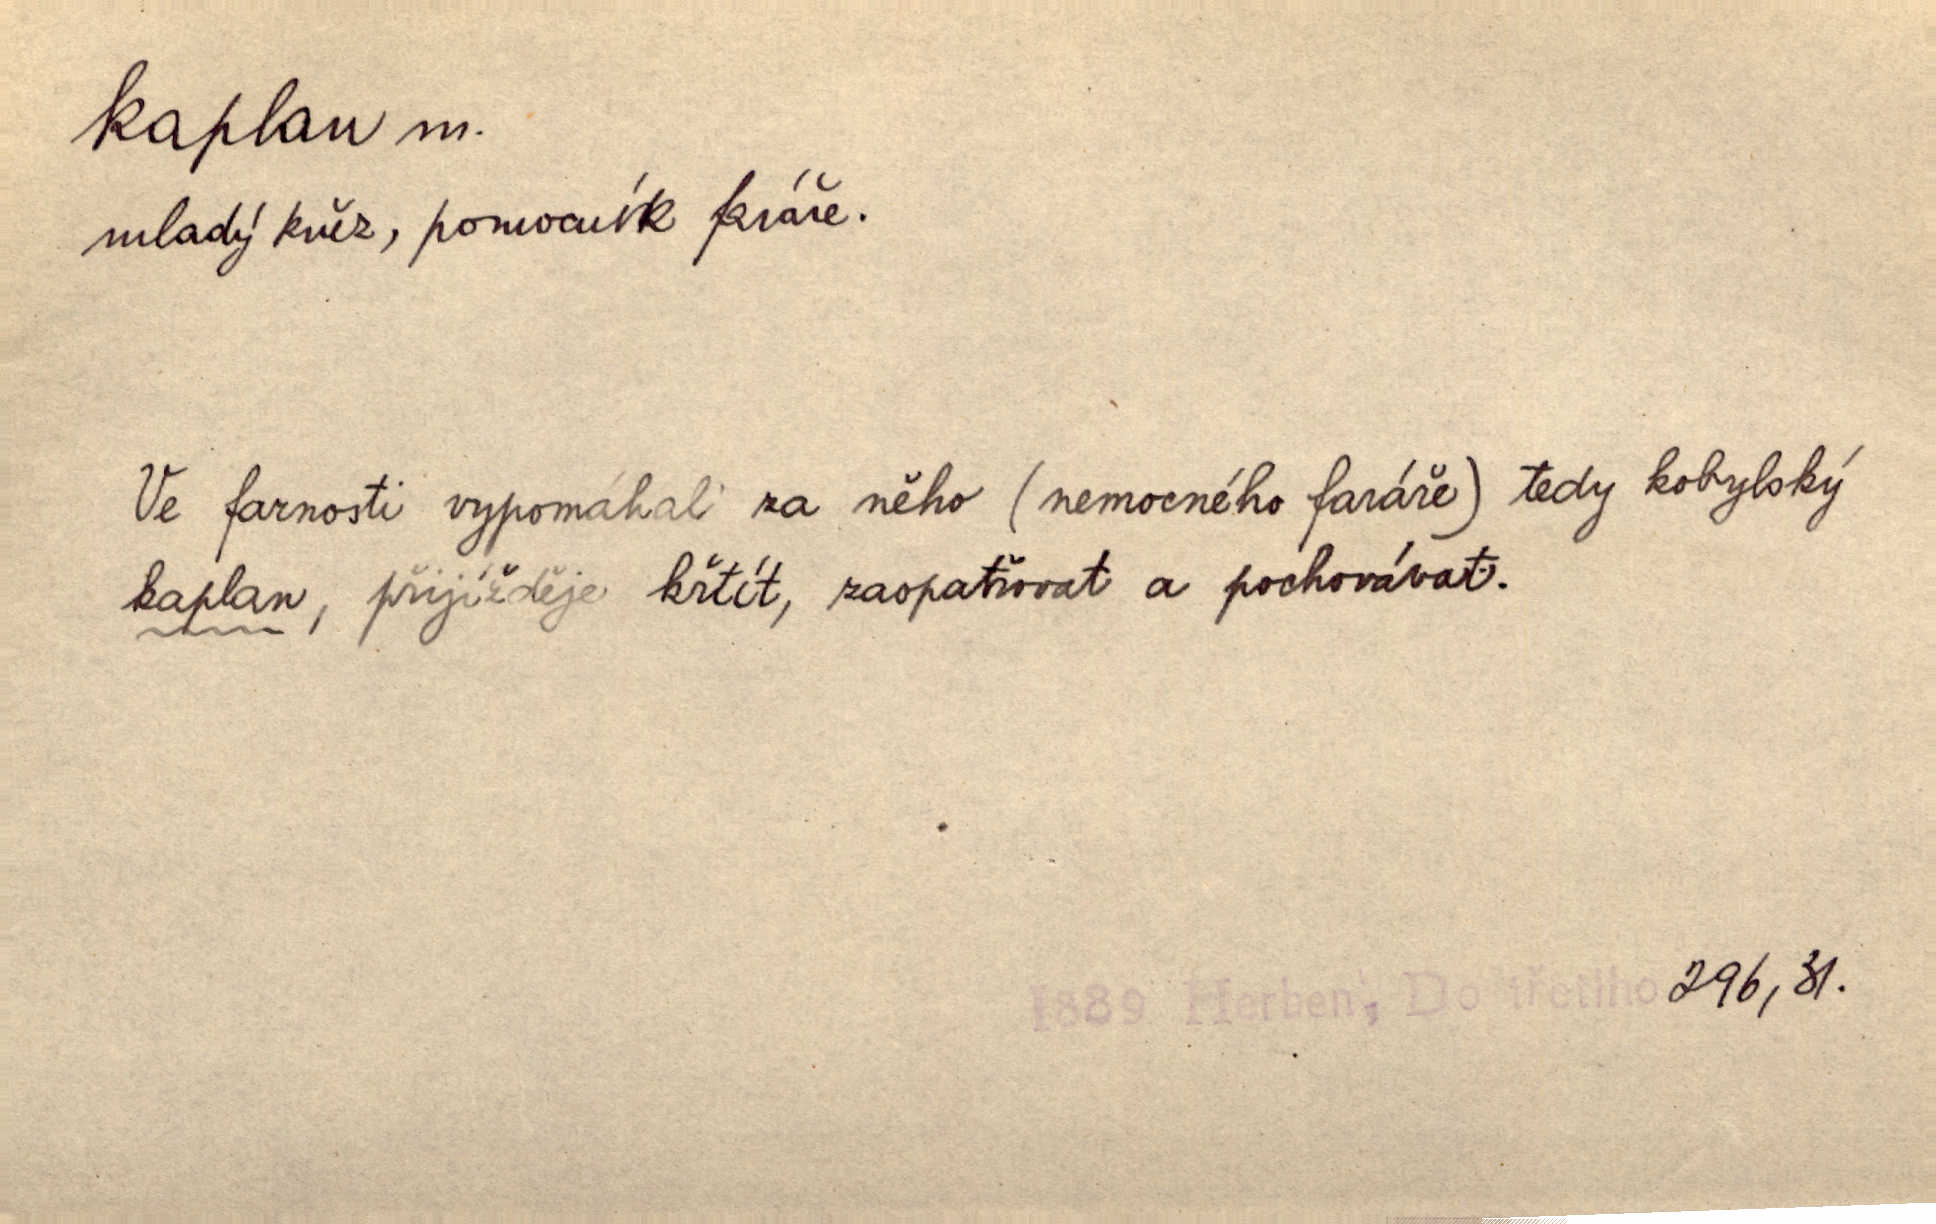 kaplan m.
mladý kněz, pomocník faráře.
Ve farnosti vypomáhali za něho (nemocného faráře) tedy kobylský
kaplan, přijížděje křtít, zaopatřovat a pochovávat.
1889 Herben, Do třetího 296, 31.